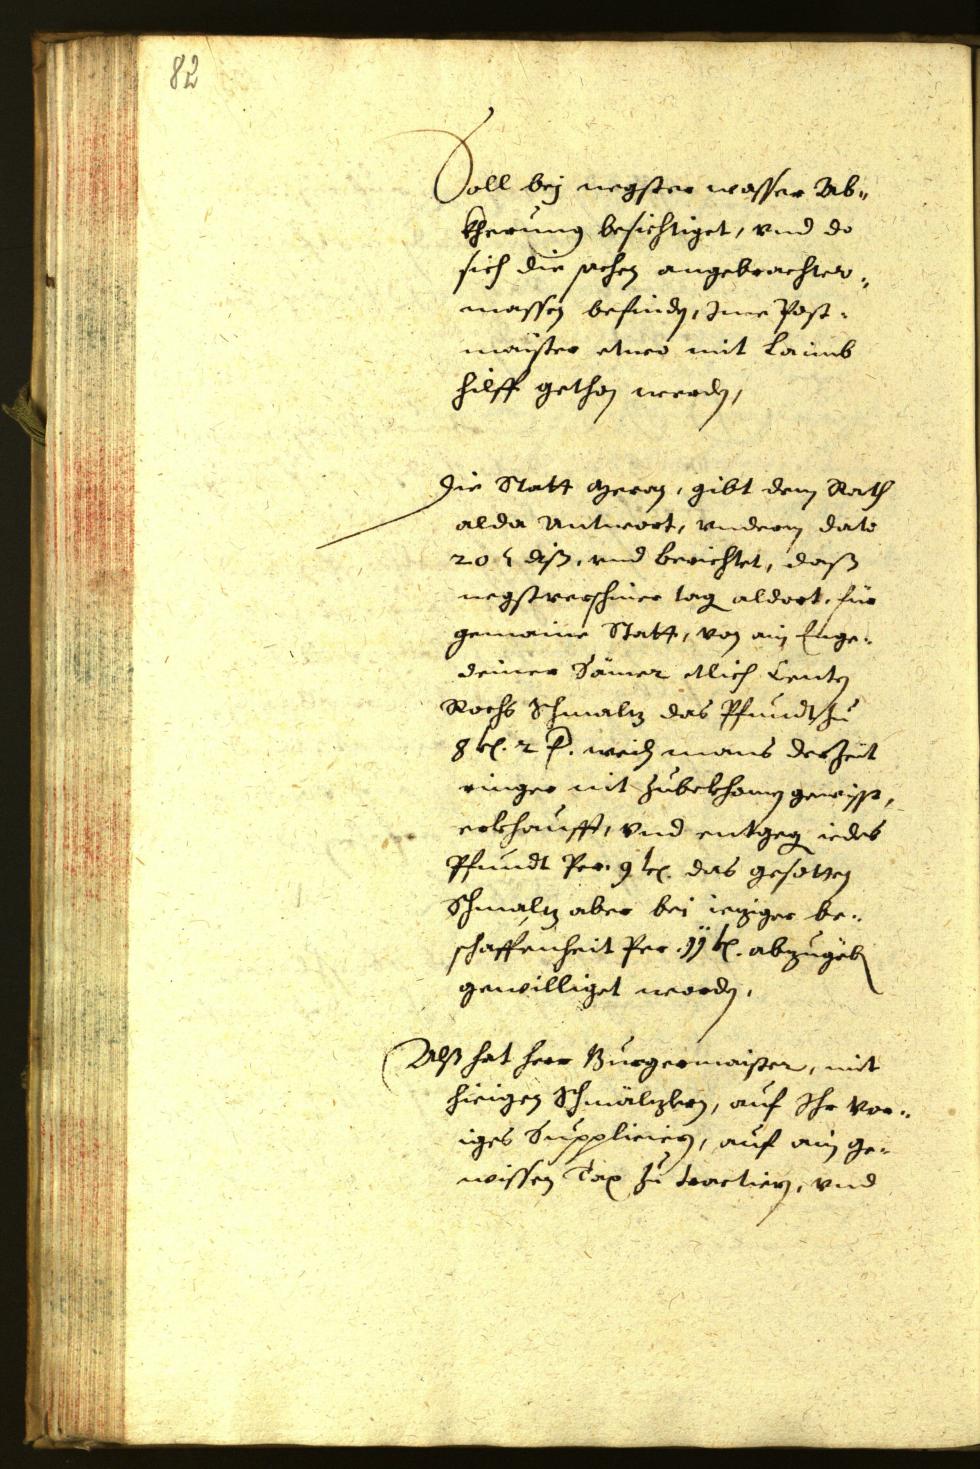 82
Soll bej negster wasser Ab„
kherung besichtiget, vnd do
sich die sachen angebrachter„
massen befinden, Ime Post„
maister etwas mit Laimb
hilff gethon werden,
Die Statt Meran, gibt dem Rath
alda Antwort, vnderm dato
20 diß, vnd berichtet, daß
negstverschiner tag aldort, für
gemaine Statt, von ain Enge„
deiner Sämer etlich Centen
Rochs Schmaltz das Pfundt zu
8 kr. 2 f. weil mans der Zeit
ringer nit zubekhomen gewisst,
erkhaufft, vnd entgegen iedes
Pfundt Per. 9 kr. das gesotten
Schmaltz aber bei ieziger be„
schaffenheit Per. 11 kr. abzugeben
gewilliget worden,
Alß hat herr Burgermaister, mit
hieigen Schmälzlern, auf Ihr vor„
iges Suppliciern, auf ain ge„
wissen Tax zu tractiern, vnd